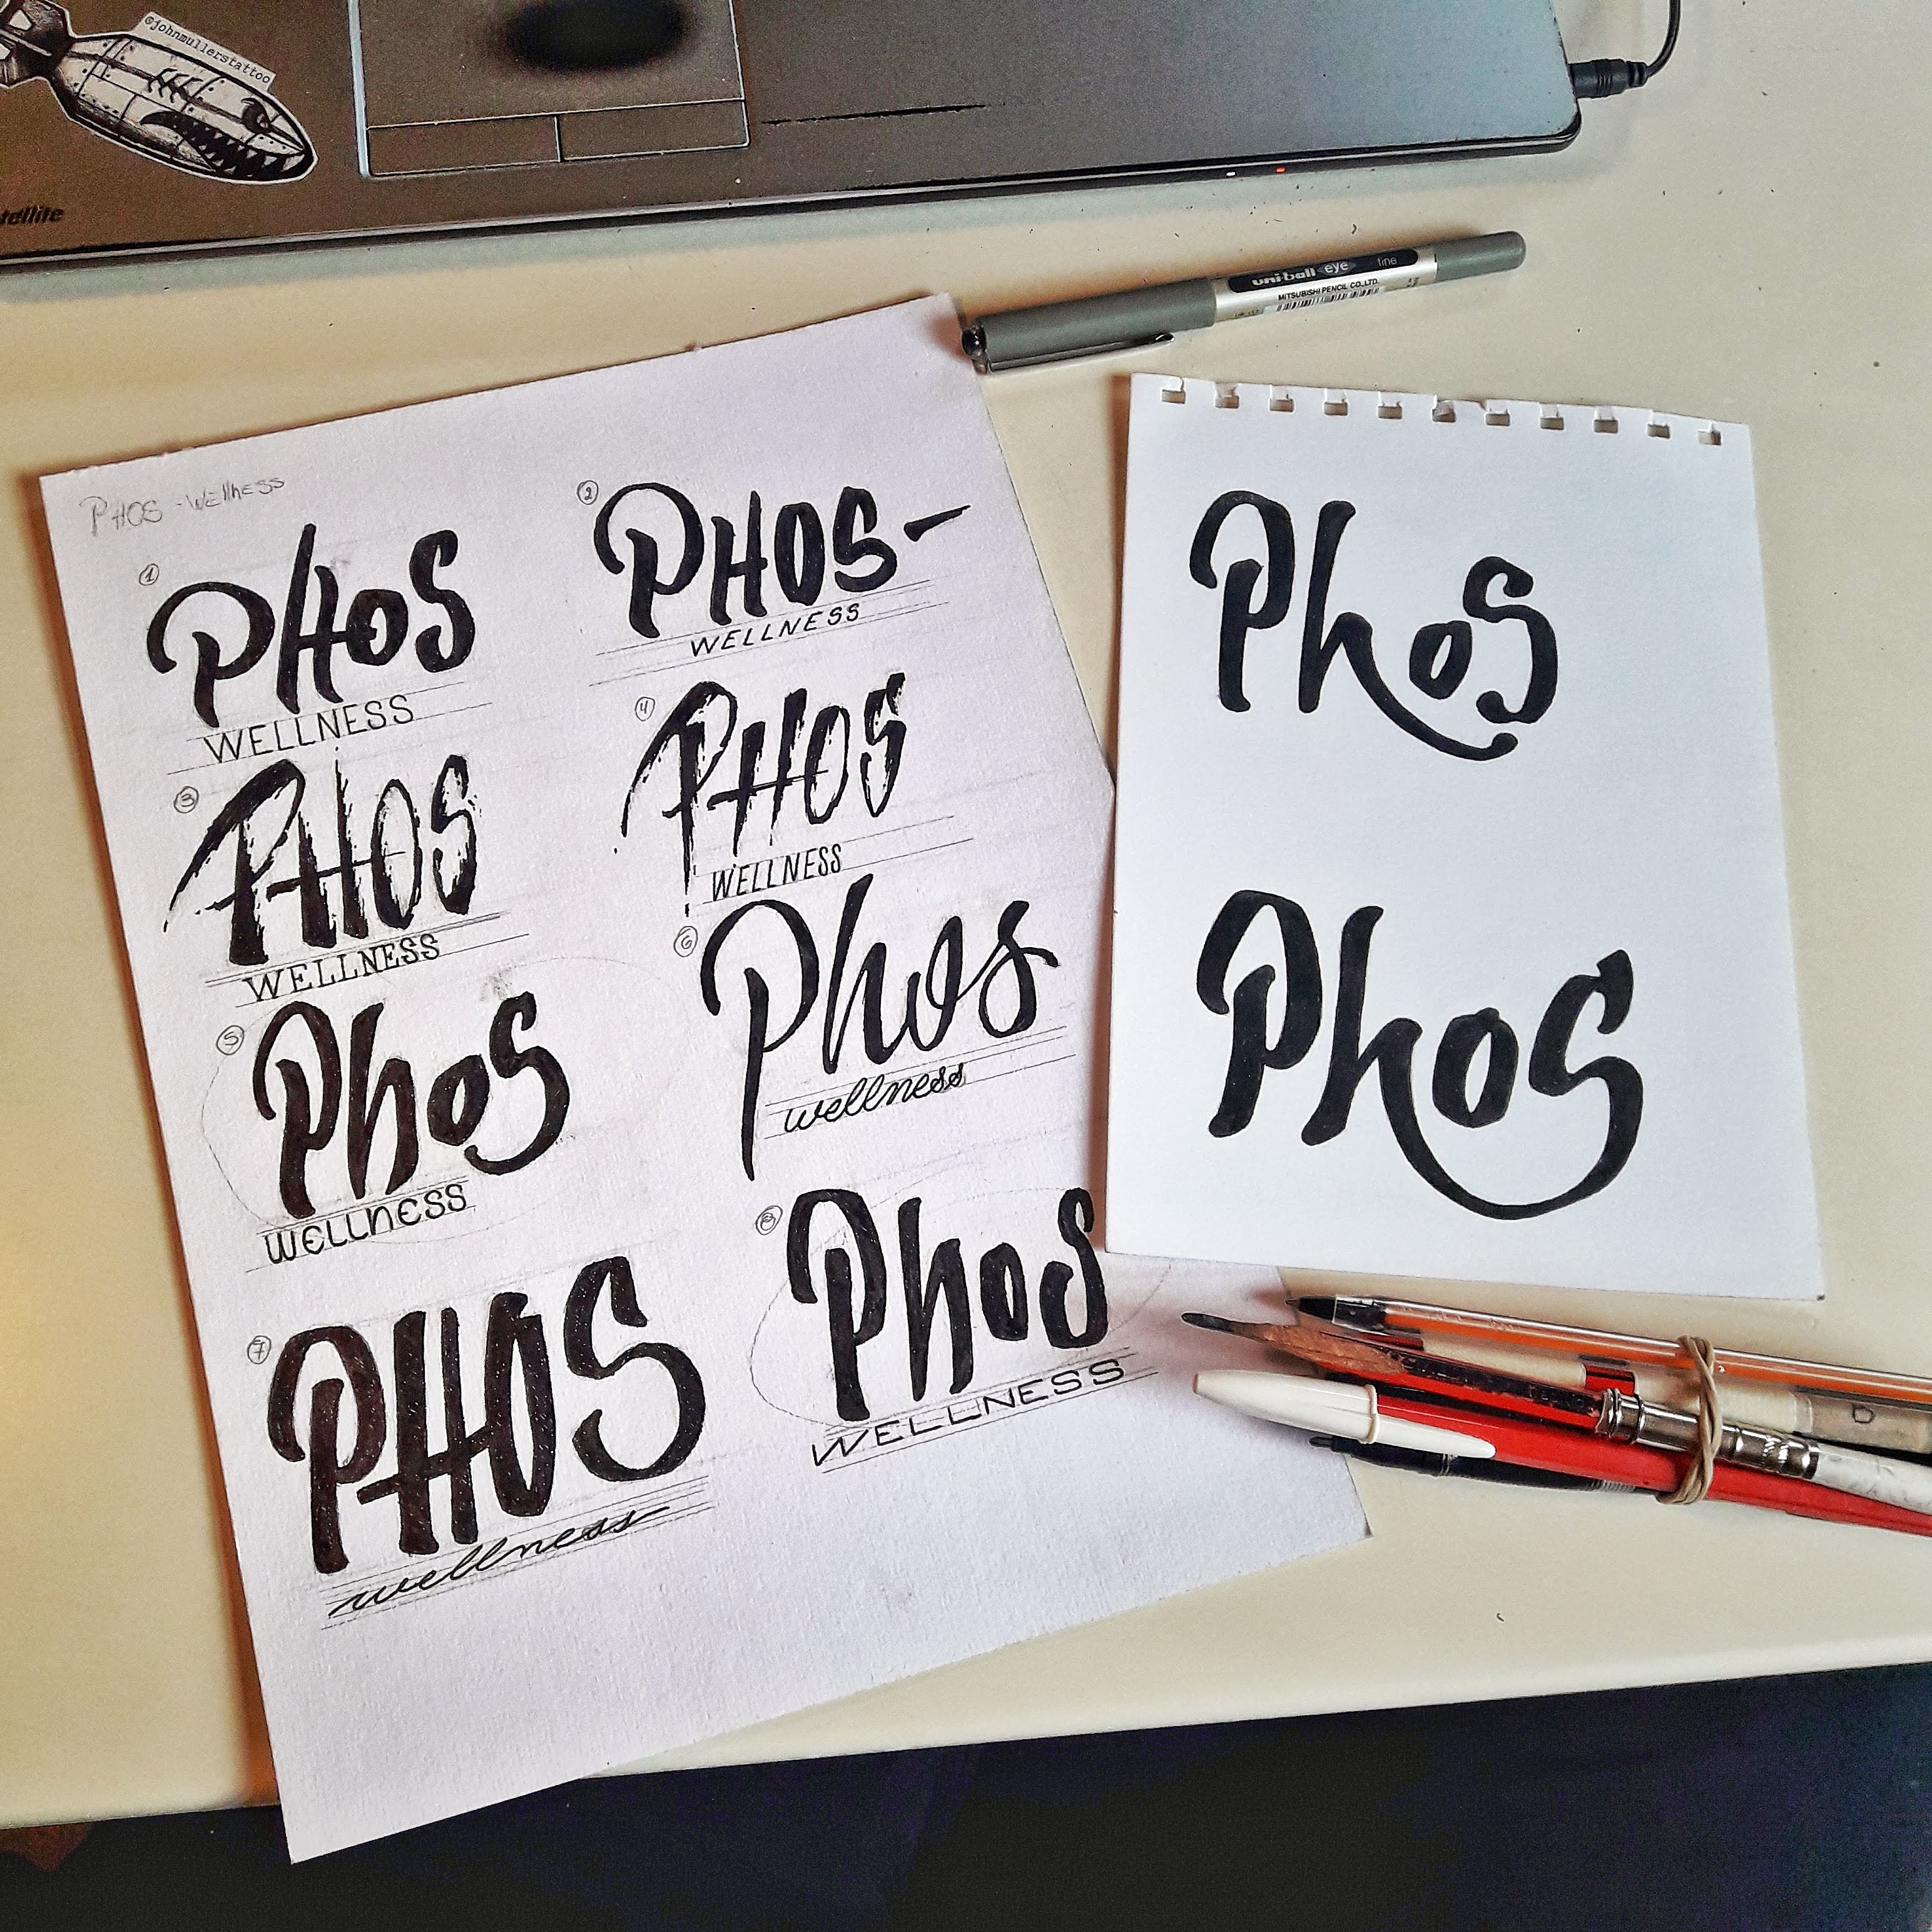 @johnmullerstattoo
tellite
uni-ball eye fine
MITSUBISHI PENCIL CO.,LTD.
PHOS - WEllNESS
1
PHOS
WELLNESS
2
PHOS-
WELLNESS
3
PHOS
WELLNESS
4
PHOS
WELLNESS
5
PhoS
WELLnESS
6
Phos
wellness
7
PHOS
wellness
8
Phos
WELLNESS
PhoS
PhoS